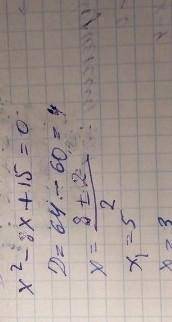 x² - 8x + 15 = 0
D = 64 - 60 = 4
x = (8 ± 2)/2
x₁ = 5
x = 3